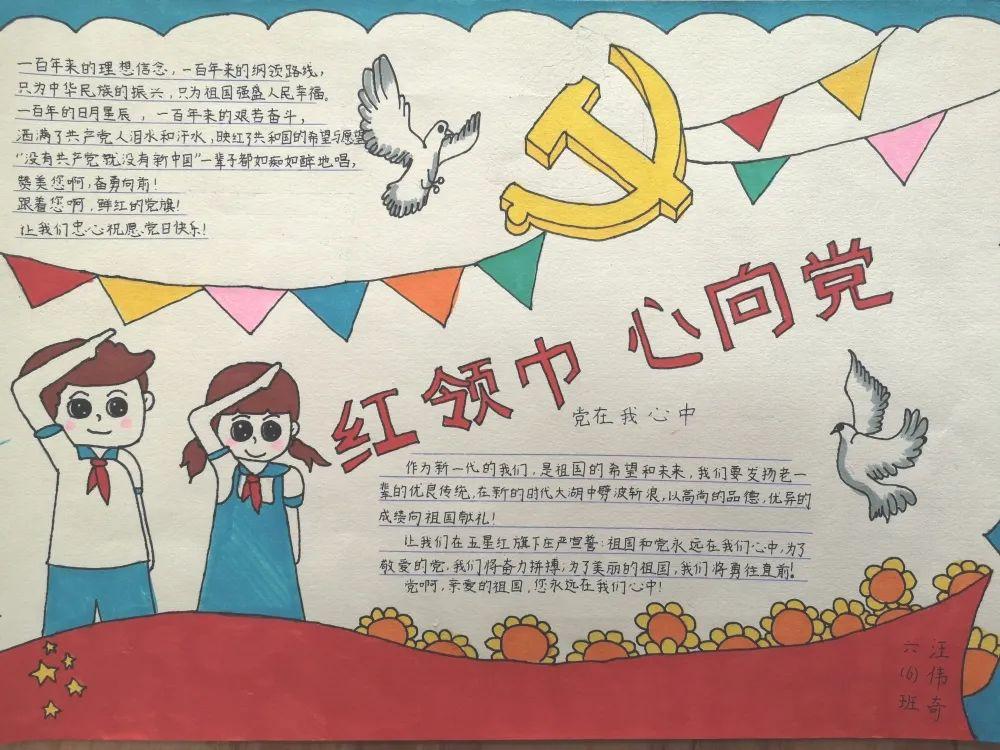 一百年来的理想信念，一百年来的纲领路线，
只为中华民族的振兴，只为祖国强盛人民幸福。
一百年的日月星辰，一百年来的艰苦奋斗，
洒满了共产党人泪水和汗水，映红了共和国的希望与愿望
"没有共产党就没有新中国"一辈子都如痴如醉地唱，
赞美您啊，奋勇向前！
跟着您啊，鲜红的党旗！
让我们忠心祝愿党日快乐！
红领巾心向党
党在我心中
作为新一代的我们，是祖国的希望和未来，我们要发扬老一
辈的优良传统，在新的时代大湖中劈波斩浪，以高尚的品德，优异的
成绩向祖国献礼！
让我们在五星红旗下庄严宣誓：祖国和党永远在我们心中，为了
敬爱的党，我们将奋力拼搏，为了美丽的祖国，我们将勇往直前！
党啊，亲爱的祖国，您永远在我们心中！
六(6)班
汪伟奇